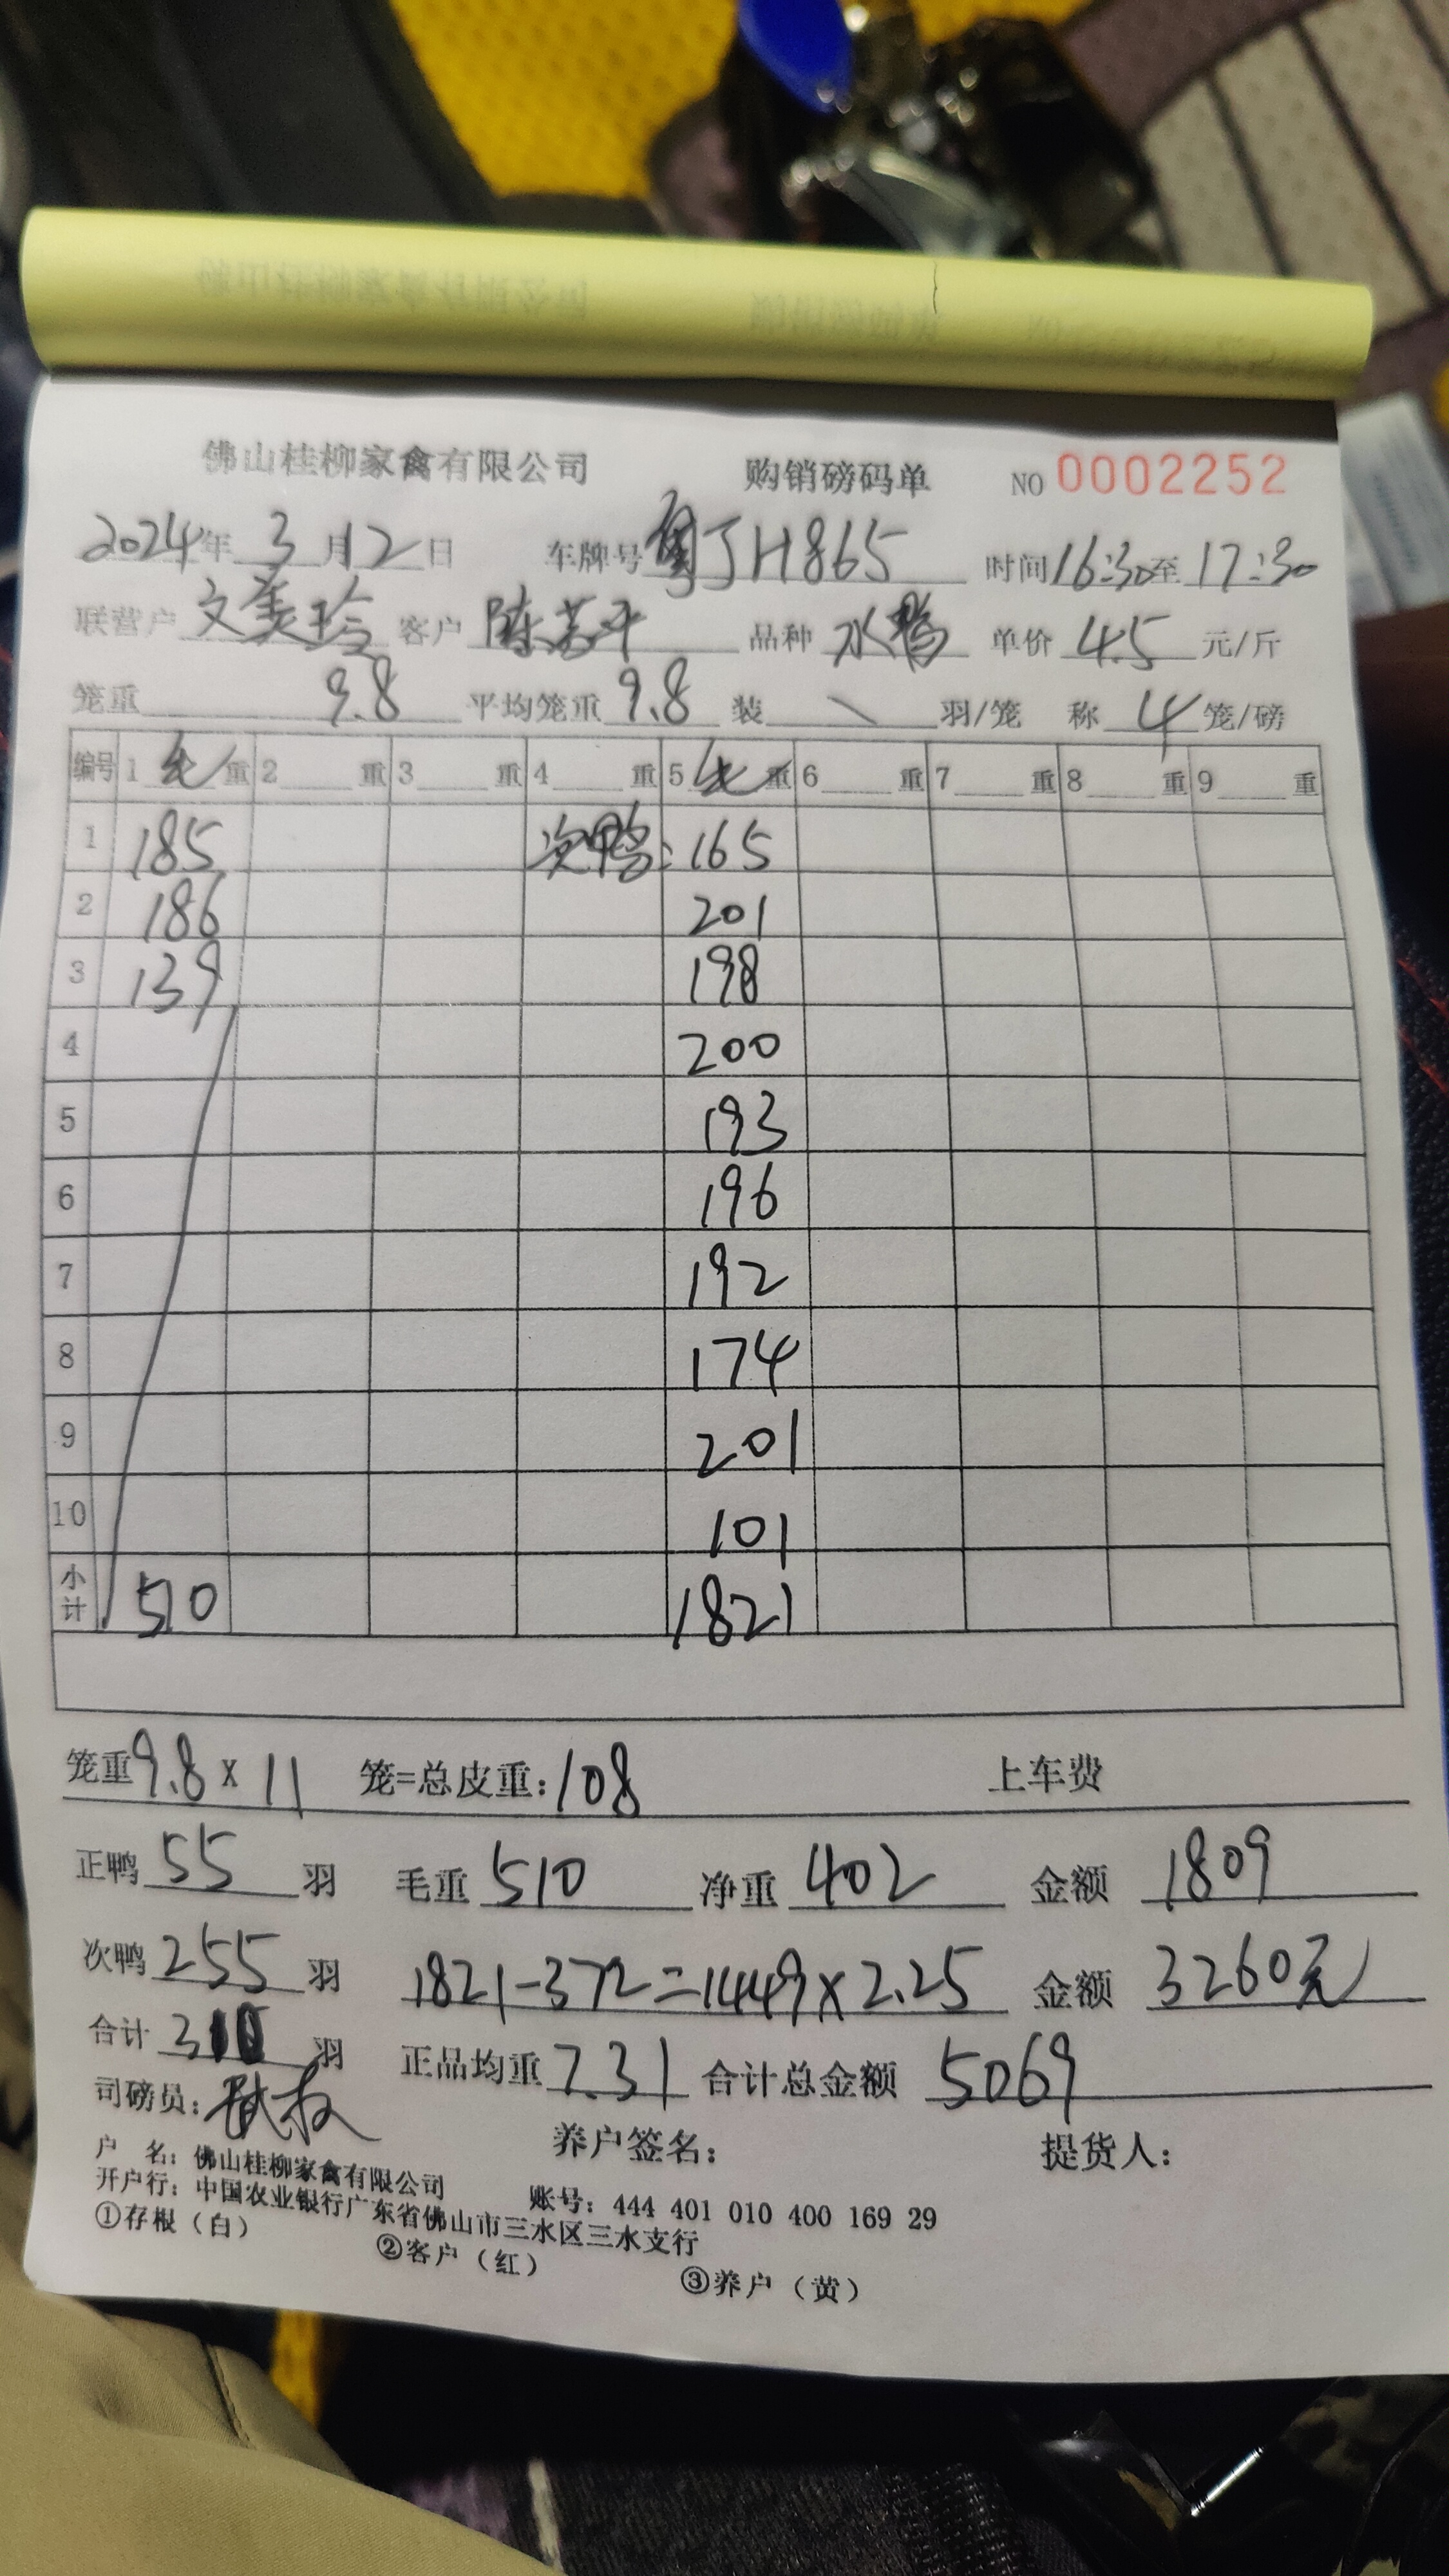 佛山桂柳家禽有限公司 购销磅码单 NO 0002252
2024年 3月12日 车牌号 粤JH865 时间 16:30至 17:30
联营户 文美玲 客户 陈苏平 品种 水鸭 单价 4.5 元/斤
笼重 9.8 平均笼重 9.8 装 \ 羽/笼 称 4 笼/磅
编号 1 毛 重 2 重 3 重 4 重 5 毛 重 6 重 7 重 8 重 9 重
1 185 次鸭: 165
2 186 201
3 139 198
4 200
5 193
6 196
7 192
8 174
9 201
10 101
小计 510 1821
笼重 9.8 x 11 笼=总皮重: 108 上车费
正鸭 55 羽 毛重 510 净重 402 金额 1809
次鸭 255 羽 1821-372=1449×2.25 金额 3260元
合计 310 羽 正品均重 7.31 合计总金额 5069
司磅员: 养户签名: 提货人:
户 名: 佛山桂柳家禽有限公司 账号: 444 401 010 400 169 29
开户行: 中国农业银行广东省佛山市三水区三水支行
①存根(白) ②客户(红) ③养户(黄)